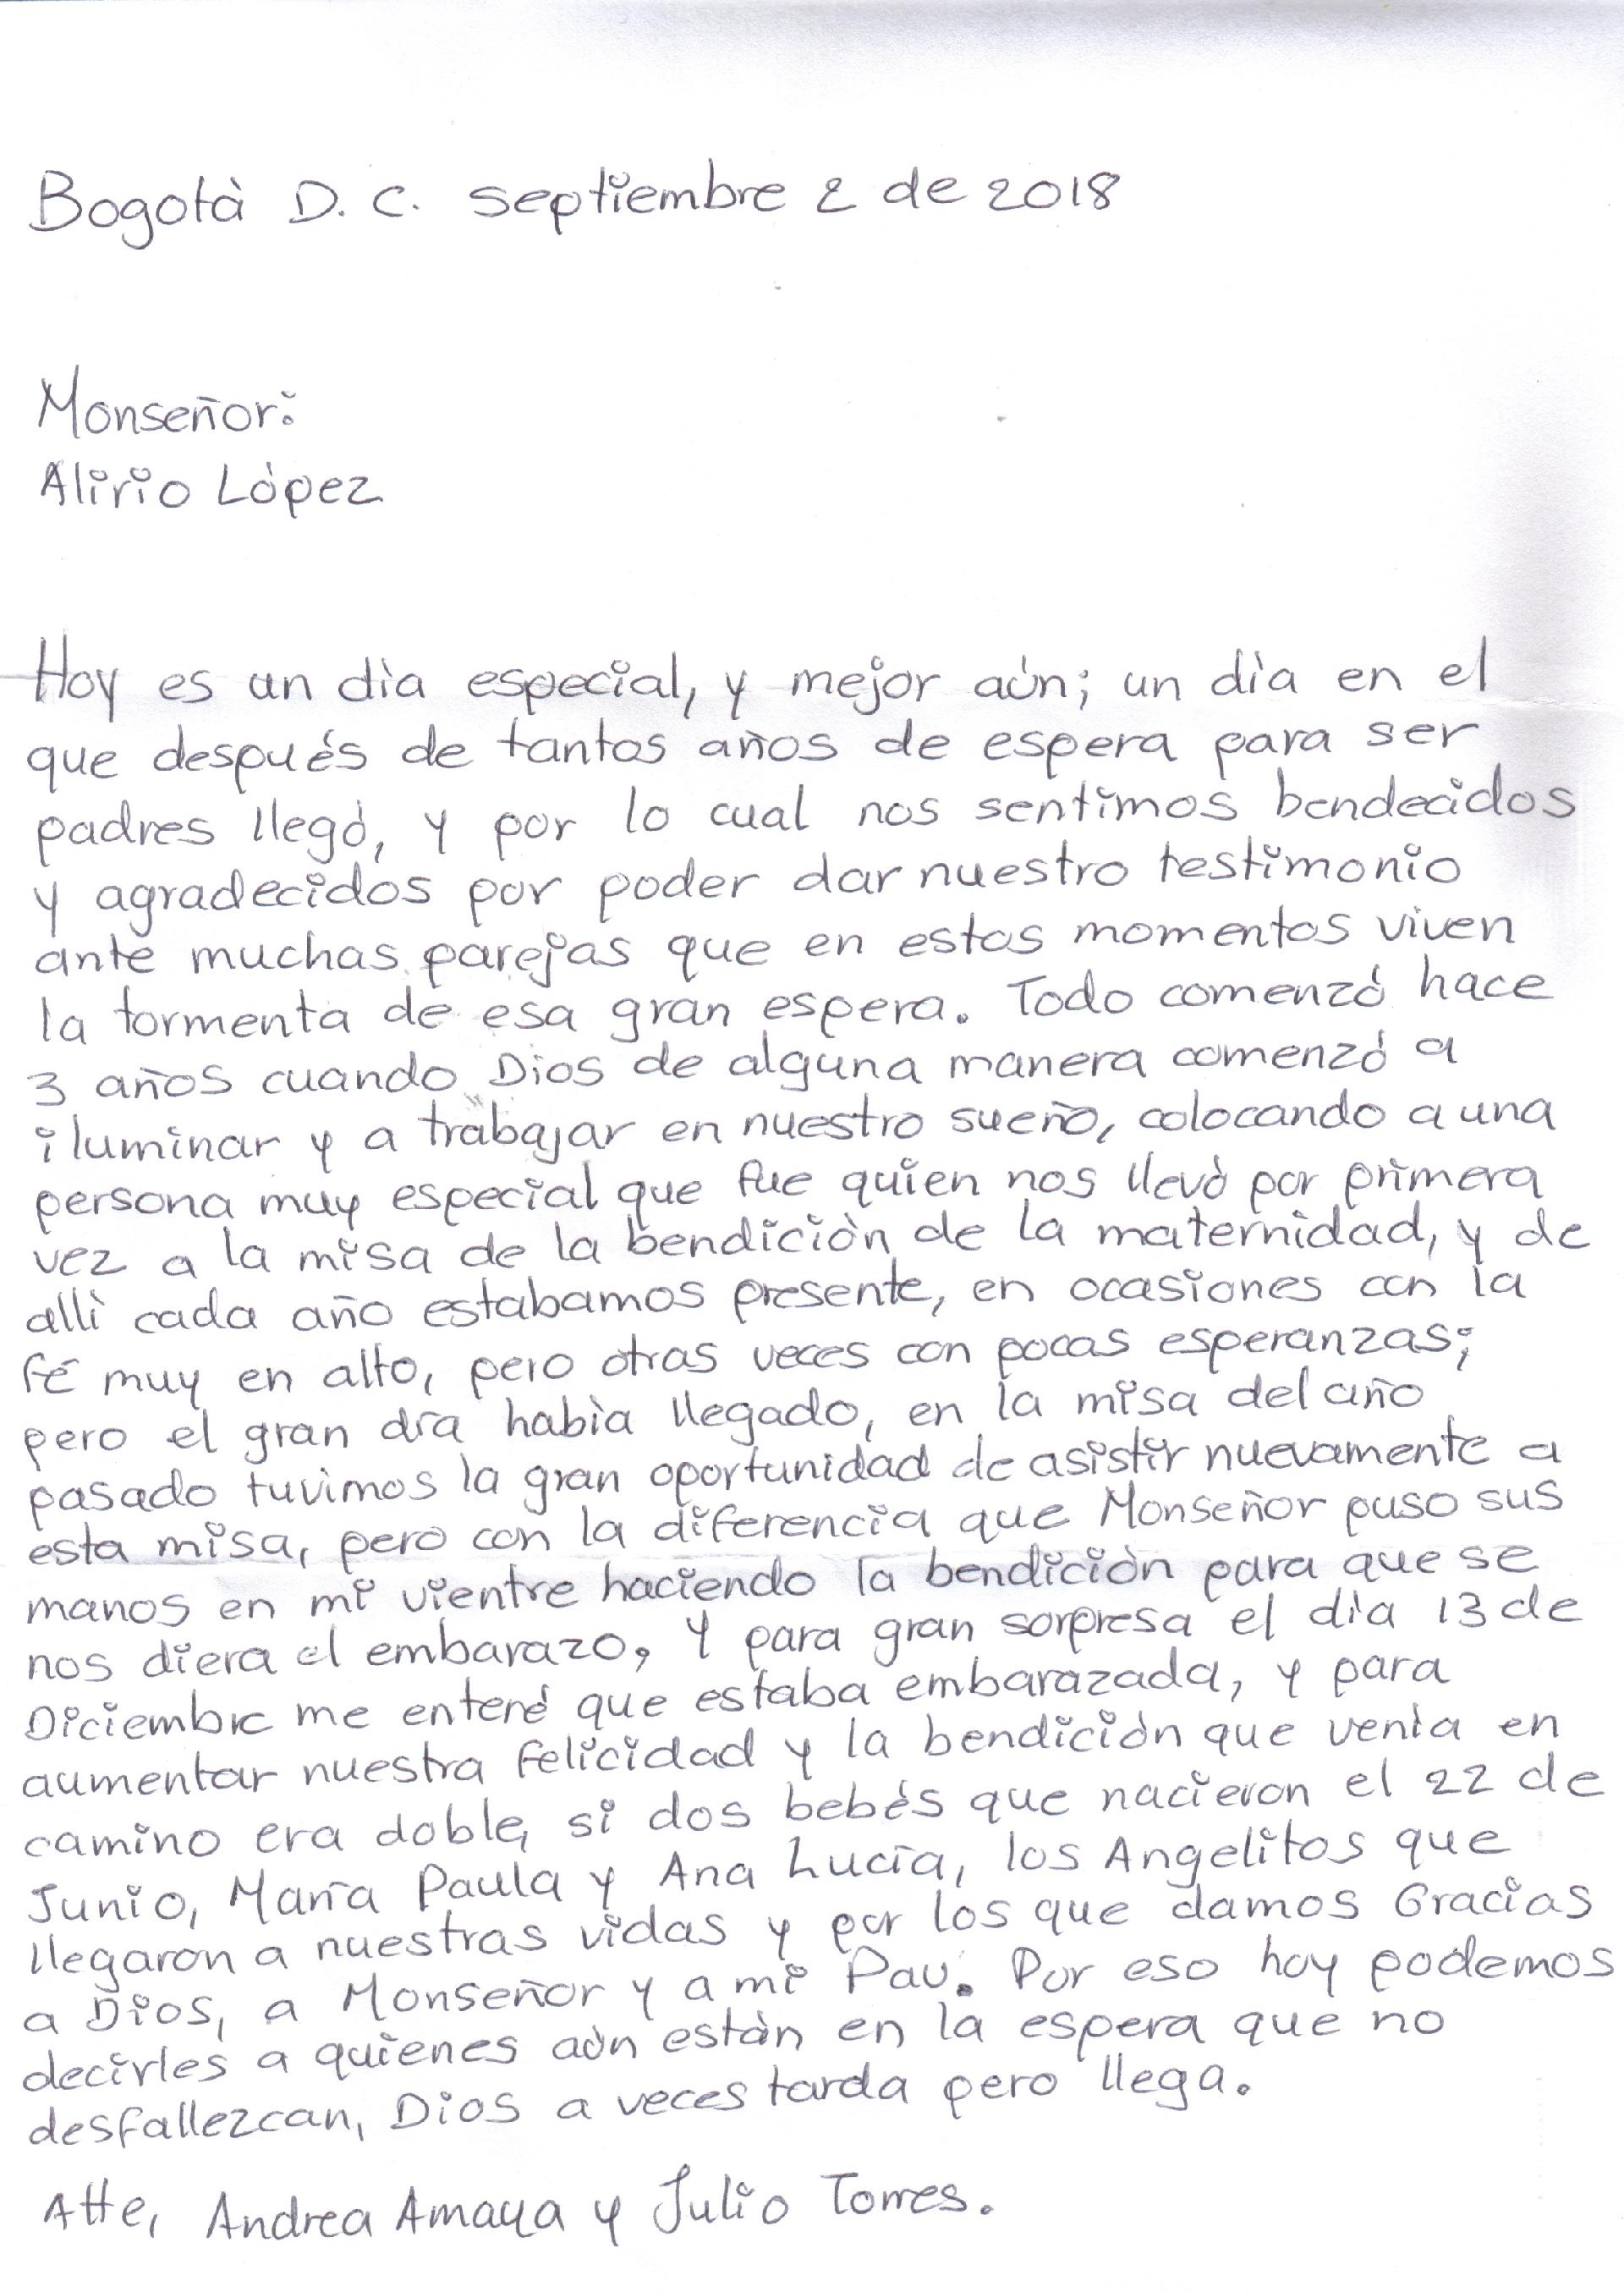 Bogotà D. C. septiembre 2 de 2018
Monseñor:
Alirio Lòpez
Hoy es un dìa especial, y mejor aùn; un dìa en el
que después de tantos años de espera para ser
padres llegò, y por lo cual nos sentimos bendecidos
y agradecidos por poder dar nuestro testimonio
ante muchas parejas que en estos momentos viven
la tormenta de esa gran espera. Todo comenzó hace
3 años cuando Dios de alguna manera comenzó a
iluminar y a trabajar en nuestro sueño, colocando a una
persona muy especial que fue quien nos llevò por primera
vez a la misa de la bendiciòn de la maternidad, y de
allì cada año estabamos presente, en ocasiones con la
fé muy en alto, pero otras veces con pocas esperanzas;
pero el gran dìa habìa llegado, en la misa del año
pasado tuvimos la gran oportunidad de asistir nuevamente a
esta misa, pero con la diferencia que Monseñor puso sus
manos en mi vientre haciendo la bendiciòn para que se
nos diera el embarazo, y para gran sorpresa el dìa 13 de
Diciembre me enteré que estaba embarazada, y para
aumentar nuestra felicidad y la bendiciòn que venìa en
camino era doble, si dos bebés que nacieron el 22 de
Junio, Marìa Paula y Ana Lucìa, los Angelitos que
llegaron a nuestras vidas y por los que damos Gracias
a Dios, a Monseñor y a mi Pau. Por eso hoy podemos
decirles a quienes aùn estàn en la espera que no
desfallezcan, Dios a veces tarda pero llega.
Atte, Andrea Amaya y Julio Torres.